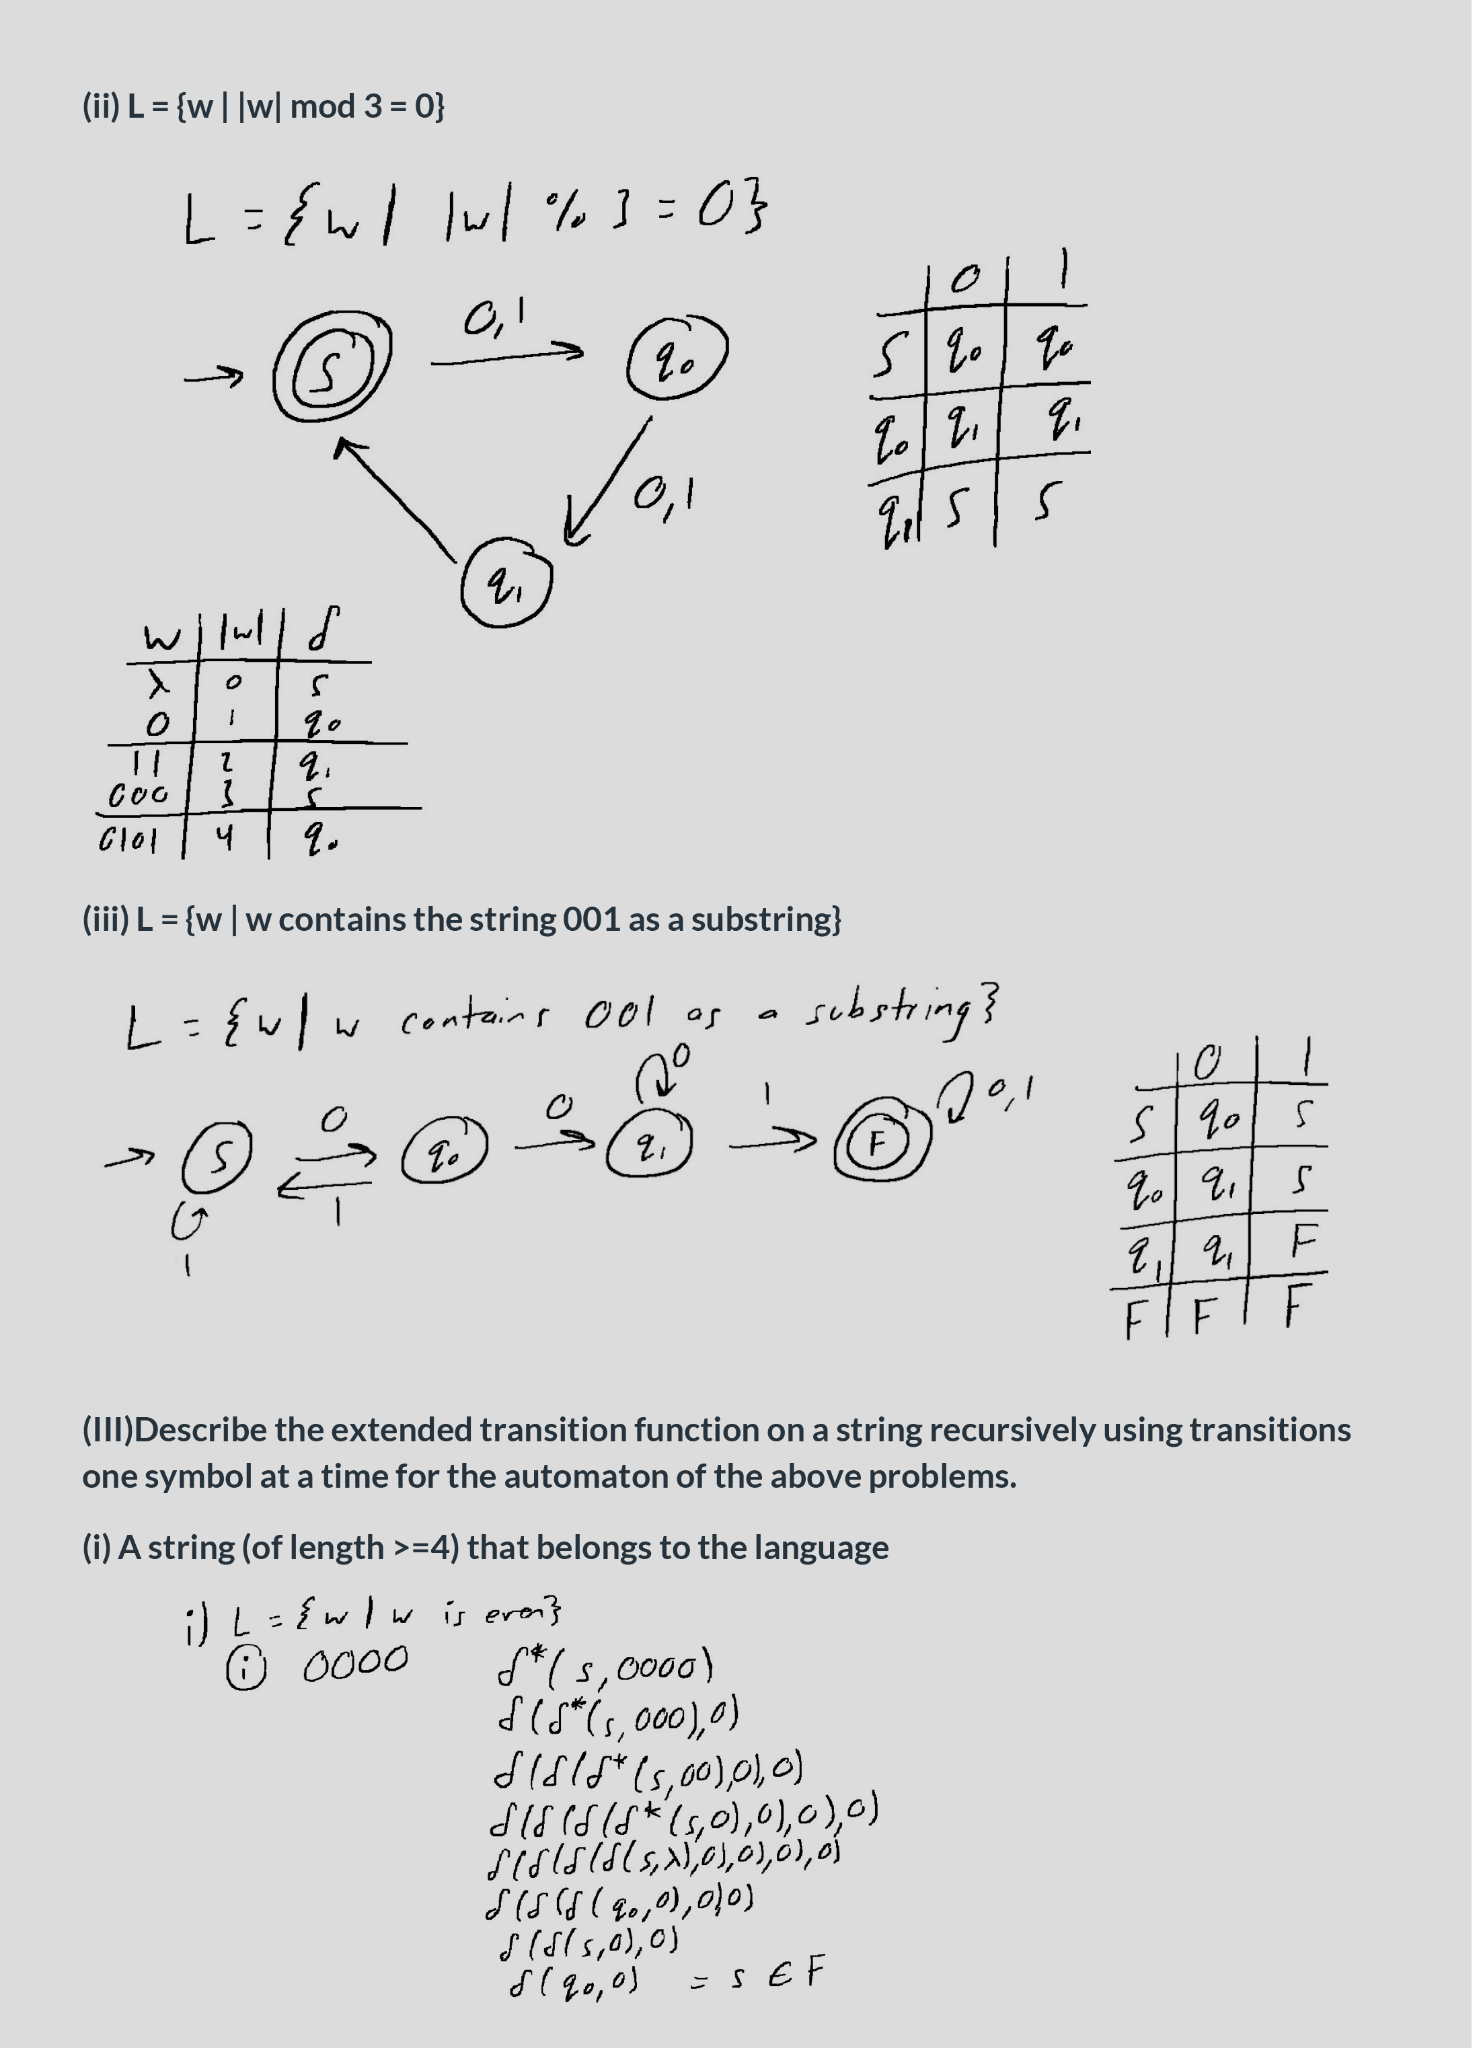 (ii) L = {w | |w| mod 3 = 0}
L = {w | |w| % 3 = 0}
0,1
S
q₀
0,1
q₁
0 1
S q₀ q₀
q₀ q₁ q₁
q₁ S S
w |w| δ
λ 0 s
0 1 q₀
11 2 q₁
000 3 s
0101 4 q₀
(iii) L = {w | w contains the string 001 as a substring}
L = {w | w contains 001 as a substring}
0
0 0 1 0,1
S q₀ q₁ F
1
1
0 1
S q₀ S
q₀ q₁ S
q₁ q₁ F
F F F
(III)Describe the extended transition function on a string recursively using transitions
one symbol at a time for the automaton of the above problems.
(i) A string (of length >=4) that belongs to the language
i) L = {w | w is even}
ⓘ 0000 δ*(s,0000)
δ(δ*(s,000),0)
δ(δ(δ*(s,00),0),0)
δ(δ(δ(δ*(s,0),0),0),0)
δ(δ(δ(δ(δ(s,λ),0),0),0),0)
δ(δ(δ(q₀,0),0),0)
δ(δ(s,0),0)
δ(q₀,0) = s ∈ F